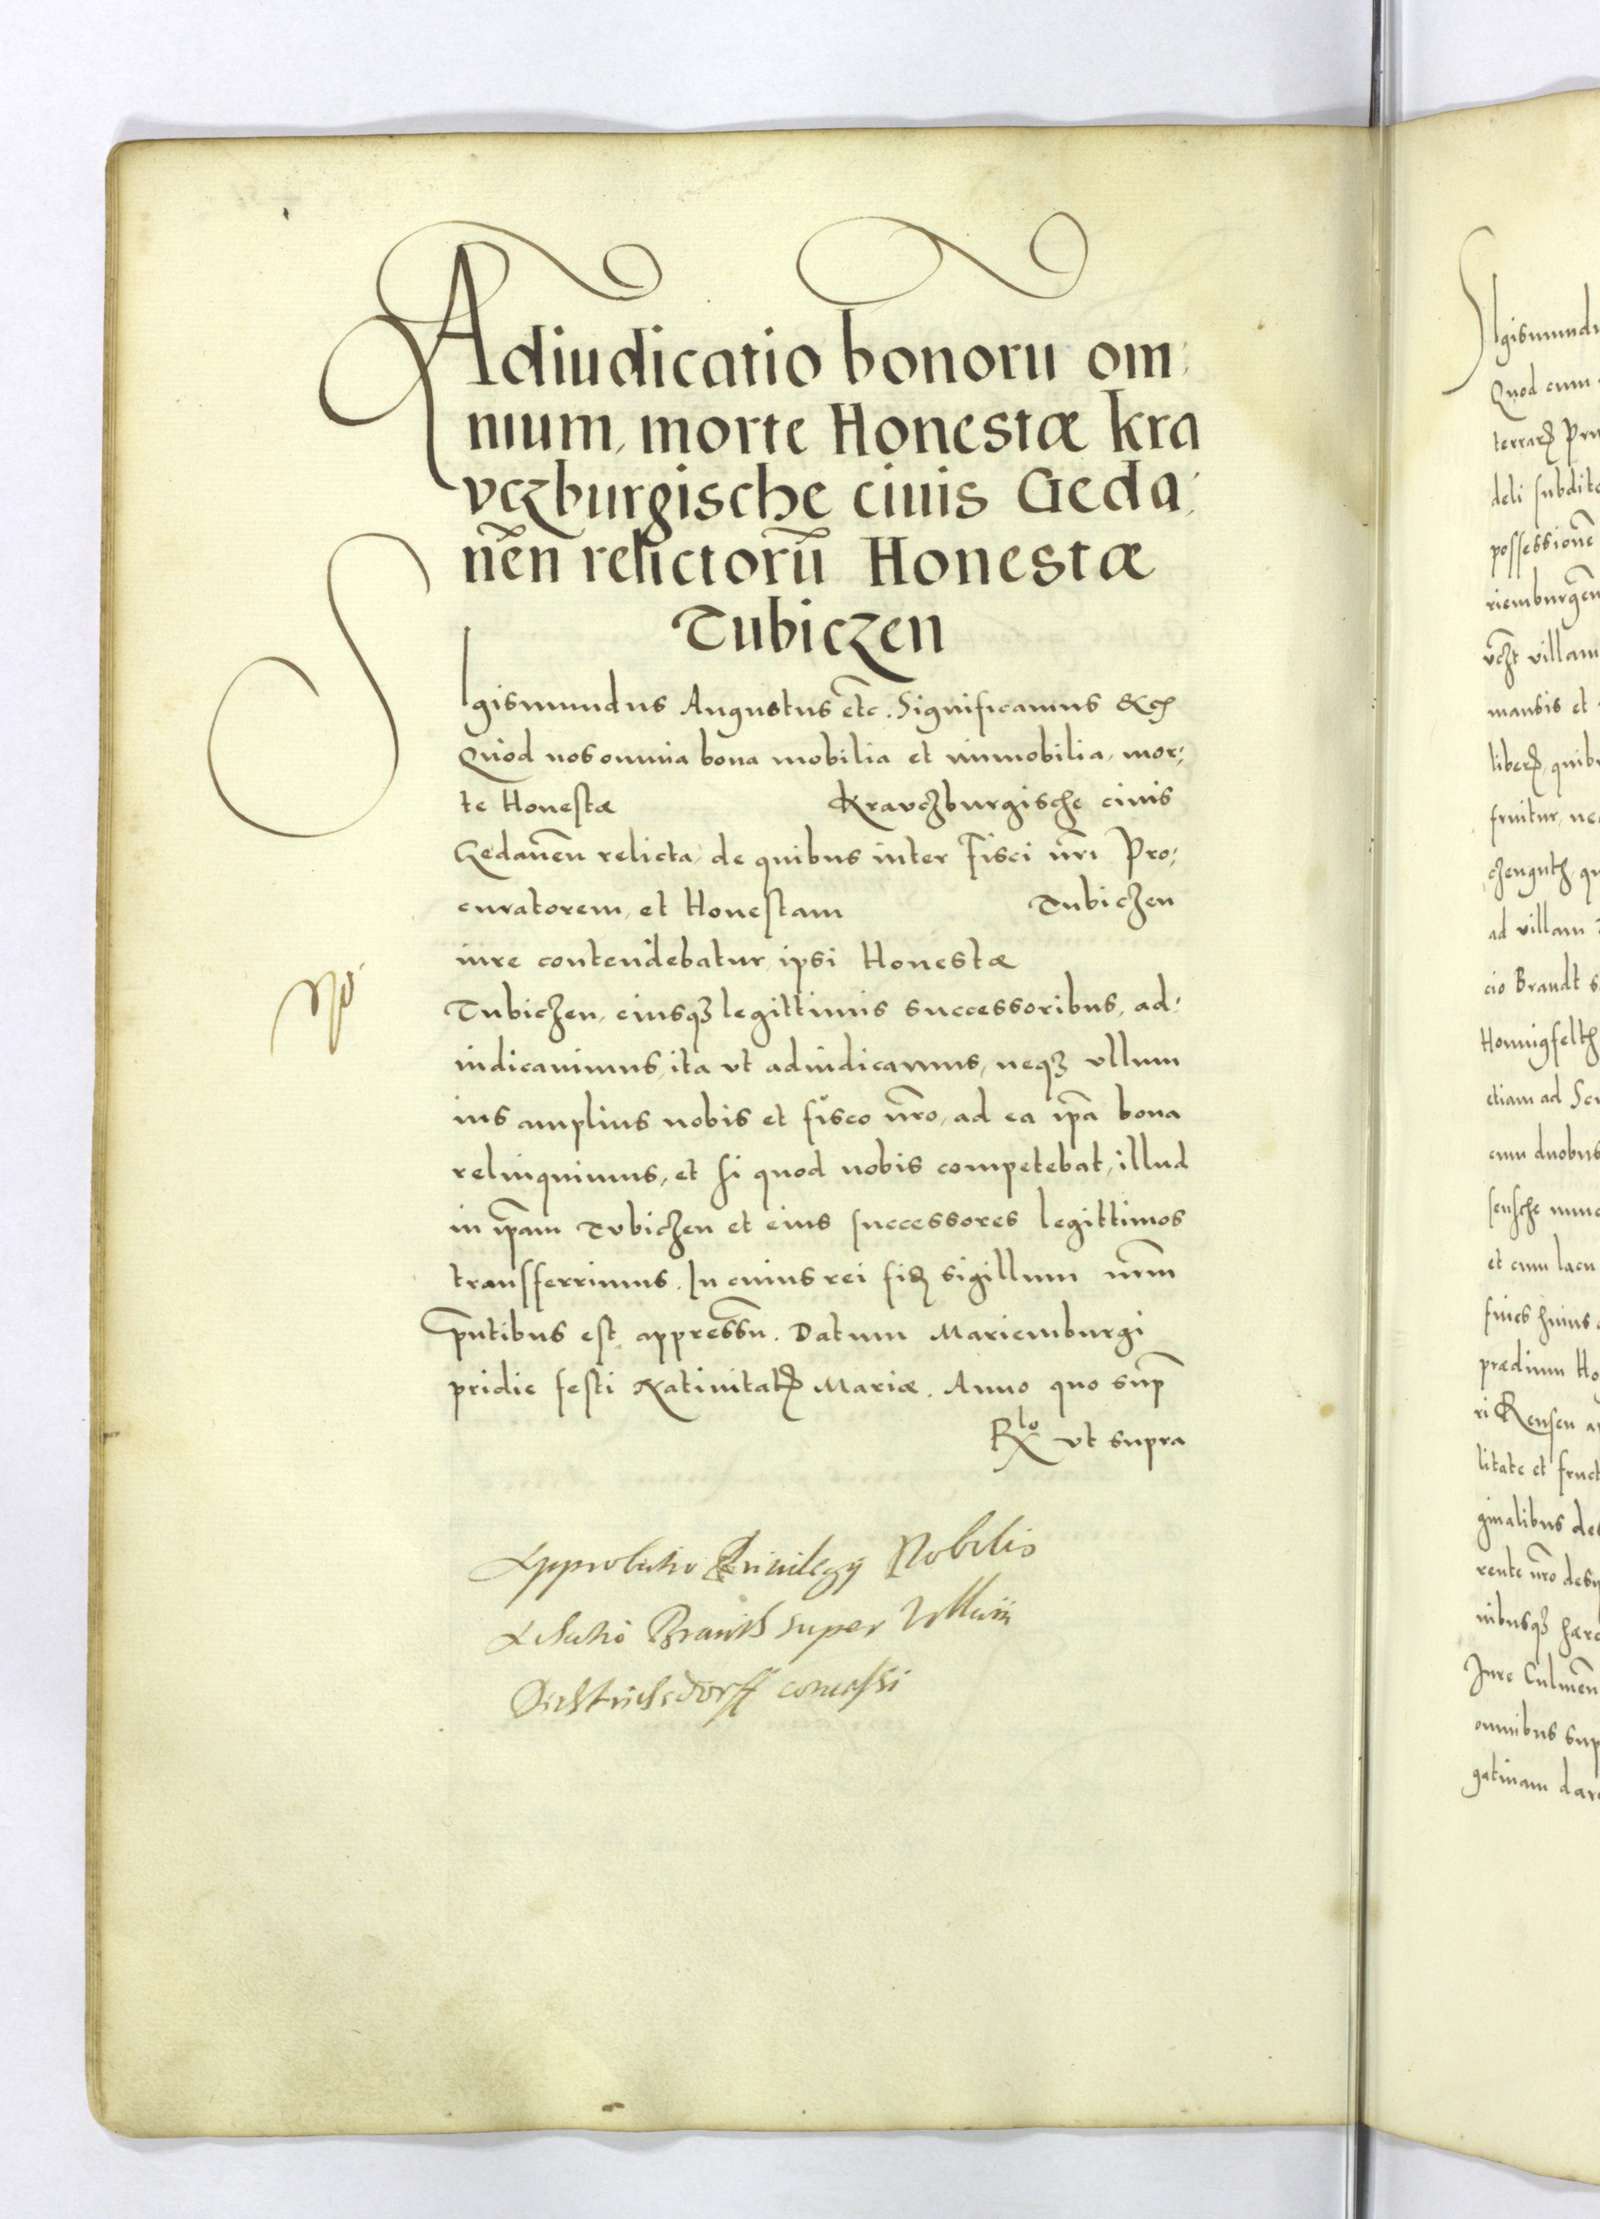 Adiudicatio bonoru om,
nium, morte Honestæ kra
vczburgische ciuis Geda,
nēn relictorū Honestæ
Tubiczen
Sigismundus Augustus etc. Significamus &c
Quod nos omnia bona mobilia et immobilia, mor,
te Honestæ Kravczburgische ciuis
Gedanēn relicta, de quibus inter Fisci nr̄i Pro,
curatorem, et Honestam Tubiczen
iure contendebatur, ipsi Honestæ
Tubiczen, eiusqꝫ legittimis successoribus, ad,
iudicauimus, ita vt adiudicamus, neqꝫ vllum
ius amplius nobis et fisco nr̄o, ad ea ip̄a bona
relinquimus, et si quod nobis competebat, illud
in ip̄am Tvbiczen et eius successores legittimos
transferrimus. In cuius rei fiꝫ sigillum nr̄m
p̄ntibus est appressū. Datum Mariemburgi
pridie festi Natiuitatꝭ Mariæ. Anno quo sup̄
Rlo vt supra
Approbatio Priuilegy Nobilis
Brandt super Villam
concessi
Sigismundu
Quod cum
terrarꝝ Pru
deli subdito
possessionē
riemburgēn
vczt villam
mansis et
liberꝝ, quib
fruitur, ne
czenguth, qu
ad villam
cio Brandt s
Honnigfelth
etiam ad Sc
cum duobus
sensche nunc
et cum lacu
fines huius
prædium Ho
ri Rensen a
litate et fruct
ginalibus de
rente nr̄o des
nibusqꝫ hære
Jure Culmēn
omnibus sup
gatinam dar